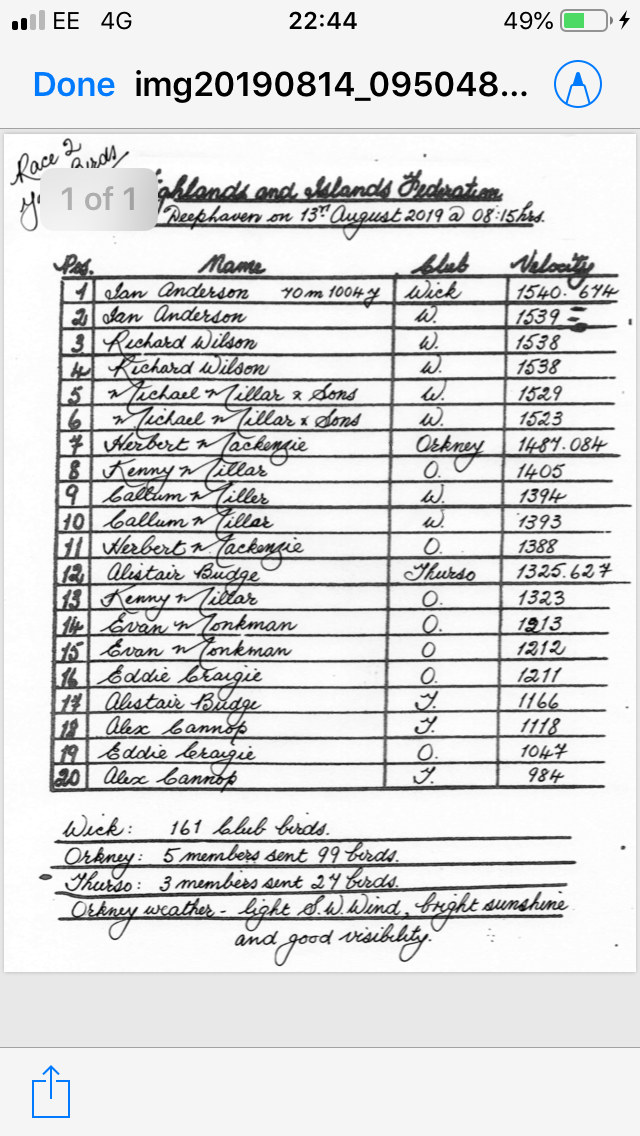 EE 4G 22:44 49%
Done img20190814_095048...
Race 2
Birds
1 of 1
ghlands and Islands Federation
Deephaven on 13th August 2019 @ 08:15hrs.
Pos. Name Club Velocity
1 Ian Anderson 70m 1004y Wick 1540.674
2 Ian Anderson W. 1539
3 Richard Wilson W. 1538
4 Richard Wilson W. 1538
5 Michael Millar & Sons W. 1529
6 Michael Millar & Sons W. 1523
7 Herbert Mackenzie Orkney 1487.084
8 Kenny Millar O. 1405
9 Callum Miller W. 1394
10 Callum Millar W. 1393
11 Herbert Mackenzie O. 1388
12 Alistair Budge Thurso 1325.627
13 Kenny Millar O. 1323
14 Evan Monkman O. 1213
15 Evan Monkman O 1212
16 Eddie Craigie O. 1211
17 Alistair Budge T. 1166
18 Alex Cannop T. 1118
19 Eddie Craigie O. 1047
20 Alex Cannop T. 984
Wick: 161 Club birds.
Orkney: 5 members sent 99 birds.
Thurso: 3 members sent 27 birds.
Orkney weather - light S.W. Wind, bright sunshine
and good visibility.